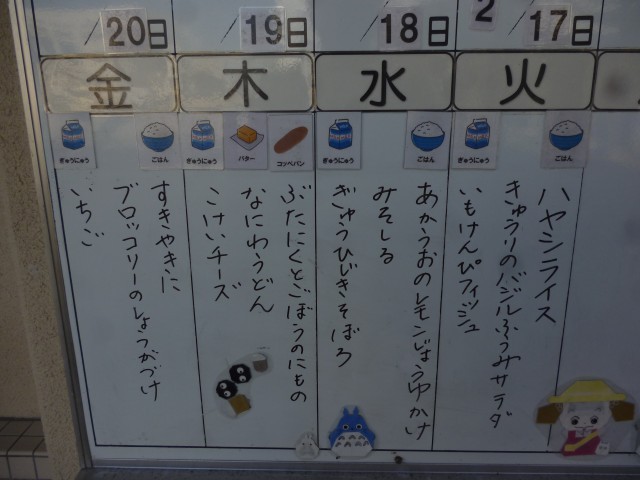 2
17日
火
ぎゅうにゅう
ごはん
ハヤシライス
きゅうりのバジルふうみサラダ
いもけんぴフィッシュ
18日
水
ぎゅうにゅう
ごはん
あかうおのレモンじょうゆかけ
みそしる
ぎゅうひじきそぼろ
19日
木
ぎゅうにゅう
バター
コッペパン
ぶたにくとごぼうのにもの
なにわうどん
こけいチーズ
20日
金
ぎゅうにゅう
ごはん
すきやきに
ブロッコリーのしょうがづけ
いちご